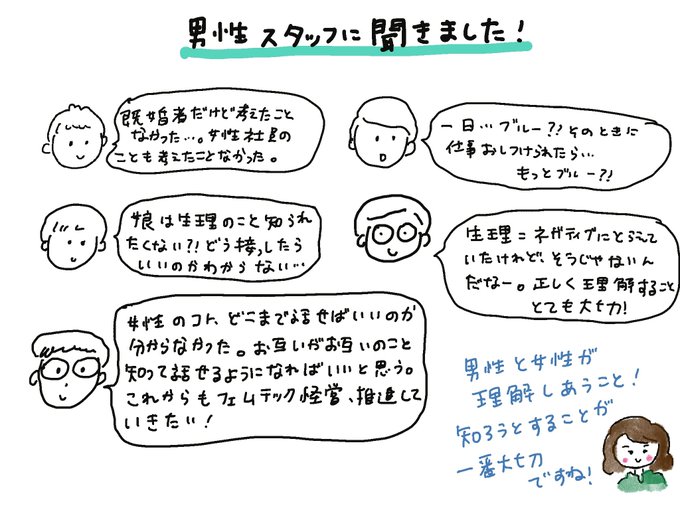 男性スタッフに聞きました!
既婚者だけど考えたこと
なかった…。女性社員の
ことも考えたことなかった。
一日…ブルー?!そのときに
仕事おしつけられたら…
もっとブルー?!
娘は生理のこと知られ
たくない?!どう接したら
いいのかわからない…
生理=ネガティブにとらえて
いたけれど、そうじゃないん
だなー。正しく理解すること
とても大切!
女性のコト、どこまで話せばいいのか
分からなかった。お互いがお互いのこと
知って話せるようになればいいと思う。
これからもフェムテック経営、推進して
いきたい!
男性と女性が
理解しあうこと!
知ろうとすることが
一番大切
ですね!